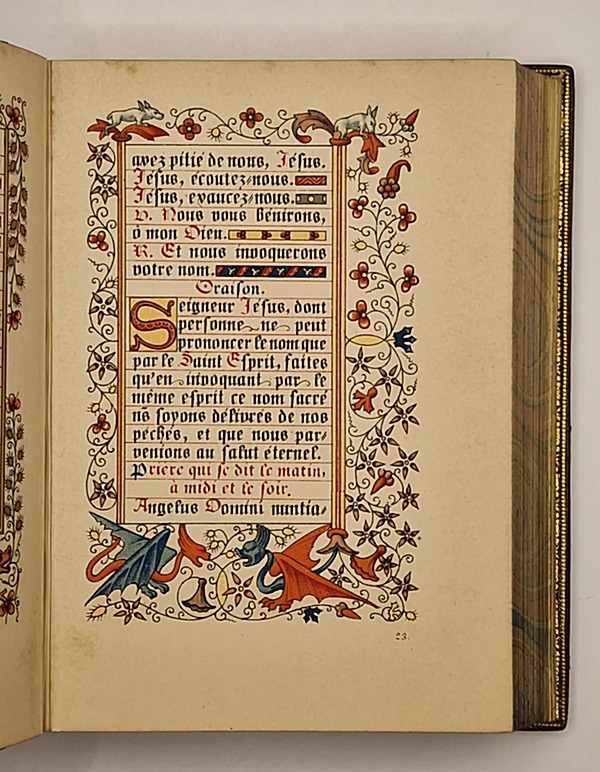 ayez pitié de nous, Jésus.
Jésus, écoutez-nous.
Jésus, exaucez-nous.
V. Nous vous bénirons,
ô mon Dieu.
R. Et nous invoquerons
votre nom.
Oraison.
Seigneur Jésus, dont
personne ne peut
prononcer le nom que
par le Saint Esprit, faites
qu'en invoquant par le
même esprit ce nom sacré
nō soyons délivrés de nos
péchés, et que nous par-
venions au salut éternel.
Prière qui se dit le matin,
à midi et le soir.
Angelus Domini nuntia-
23.